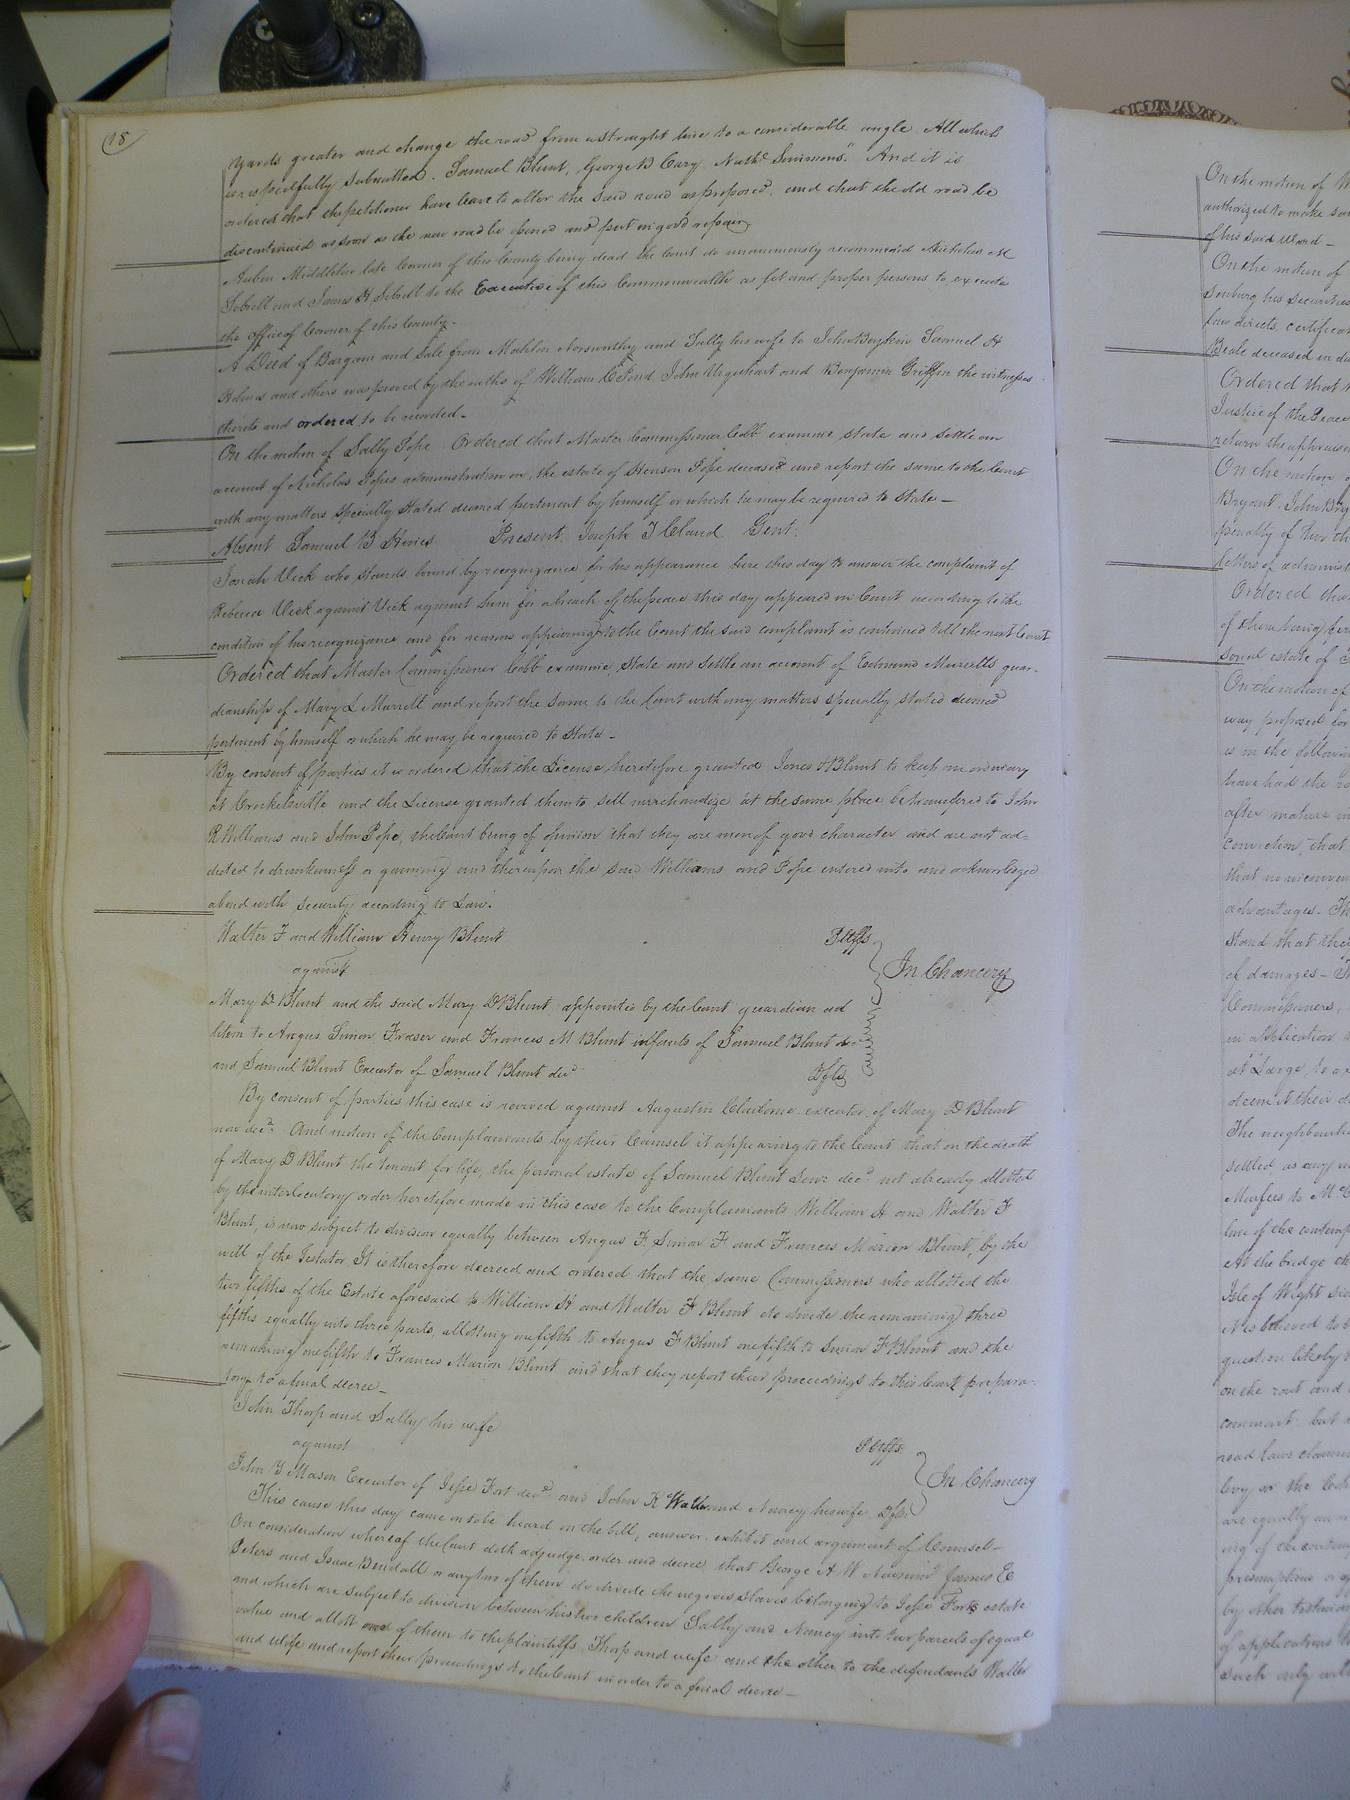 18
yards greater and change the road from a straight line to a considerable angle. All which
is respectfully submitted. Samuel Blunt, George B Cary, Nathl Simmons." And it is
ordered that the petitioner have leave to alter the said road as proposed, and that the old road be
discontinued as soon as the new road be opened and put in good repair
Middleton late Coroner of this County being dead the Court do unanimously recommend Nicholas M
Sebrell and James H Sebrell to the Executive of this Commonwealth as fit and proper persons to execute
the office of Coroner of this County.
A Deed of Bargain and Sale from Mahlon Norsworthy and Sally his wife to John Boykin Samuel H
Holmes and others was proved by the oaths of William C Pond, John Urquhart and Benjamin Griffin the witnesses
thereto and ordered to be recorded.
On the motion of Sally Pope Ordered that Master Commissioner Cobb examine, state and settle an
account of Nicholas Popes administration on the estate of Henson Pope deceased and report the same to the Court
with any matters specially stated deemed pertinent by himself or which he may be required to state
Absent Samuel B Hines Present, Joseph T Claud Gent.
Josiah Vick who stands bound by recognizance for his appearance here this day to answer the complaint of
Rebecca Vick against Vick against him for a breach of the peace this day appeared in Court according to the
condition of his recognizance and for reasons appearing to the Court the said complaint is continued till the next Court
Ordered that Master Commissioner Cobb examine, state and settle an account of Edmund Murrells guar-
dianship of Mary L Murrell and report the same to the Court with any matters specially stated deemed
pertinent by himself or which he may be required to state
By consent of parties it is ordered that the License heretofore granted Jones & Blunt to keep an ordinary
at Crockelsville and the License granted them to sell merchandize at the same place be transferred to John
R Williams and John Pope, the Court being of opinion that they are men of good character and are not ad-
dicted to drunkenness or gaming and thereupon the said Williams and Pope entered into and acknowledged
a bond with security according to Law.
Walter F and William Henry Blunt Pltffs
against In Chancery
Mary D Blunt and the said Mary D Blunt appointed by the Court guardian ad
litem to Angus Simon Fraser and Frances M Blunt infants of Samuel Blunt decd
and Samuel Blunt Executor of Samuel Blunt decd Dfts
By consent of parties this case is revived against Augustin Claiborne executor of Mary D Blunt
now decd. And motion of the Complainants by their Counsel it appearing to the Court that on the death
of Mary D Blunt the tenant for life, the personal estate of Samuel Blunt Senr decd not already allotted
by the interlocutory order heretofore made in this case to the Complainants William H and Walter F
Blunt, is now subject to division equally between Angus F. Simon F and Frances Marion Blunt, by the
will of the Testator It is therefore decreed and ordered that the same Commissioners who allotted the
two fifths of the Estate aforesaid to William H and Walter F Blunt do divide the remaining three
fifths equally into three parts, allotting one fifth to Angus F Blunt one fifth to Simon F Blunt and the
remaining one fifth to Frances Marion Blunt and that they report their proceedings to this Court prepara-
tory to a final decree
John Thorp and Sally his wife
against Pltffs
John Y Mason Executor of Jesse Fort decd and John K Waller and Nancy his wife Dfts In Chancery
This cause this day came on to be heard on the bill, answer exhibit and argument of Counsel
On consideration whereof the Court doth adjudge order and decree that George A W Newsom James E
Peters and Isaac Bendall or any two of them do divide the negroe slaves belonging to Jesse Forts estate
and which are subject to division between his two children Sally and Nancy into two parcels of equal
value and allott one of them to the plaintiffs Thorp and wife and the other to the defendants Waller
and Wife and report their proceedings to the Court in order to a final decree
On the motion of
authorized to make
of his said Ward
On the motion of
his securities
certificat
Beale deceased in
Ordered that
Justice of the Peace
return the appraise
On the motion
Bryant, John
penalty of
letters of administ
Ordered that
of them being
sonal estate of
On the motion of
way proposed for
is in the following
have had the
after mature
conviction, that
that no inconven
advantages.
Stand that the
of damages
Commissioners,
in application
at Large, to
deem it their
The neighbourh
settled as any
Murfees to
line of the contemp
At the bridge
Isle of Wight
it is believed to
question likely
on the rout and
comment but
road laws
levy or the
are equally
ing of the
presumptions
by other
of applications
such only